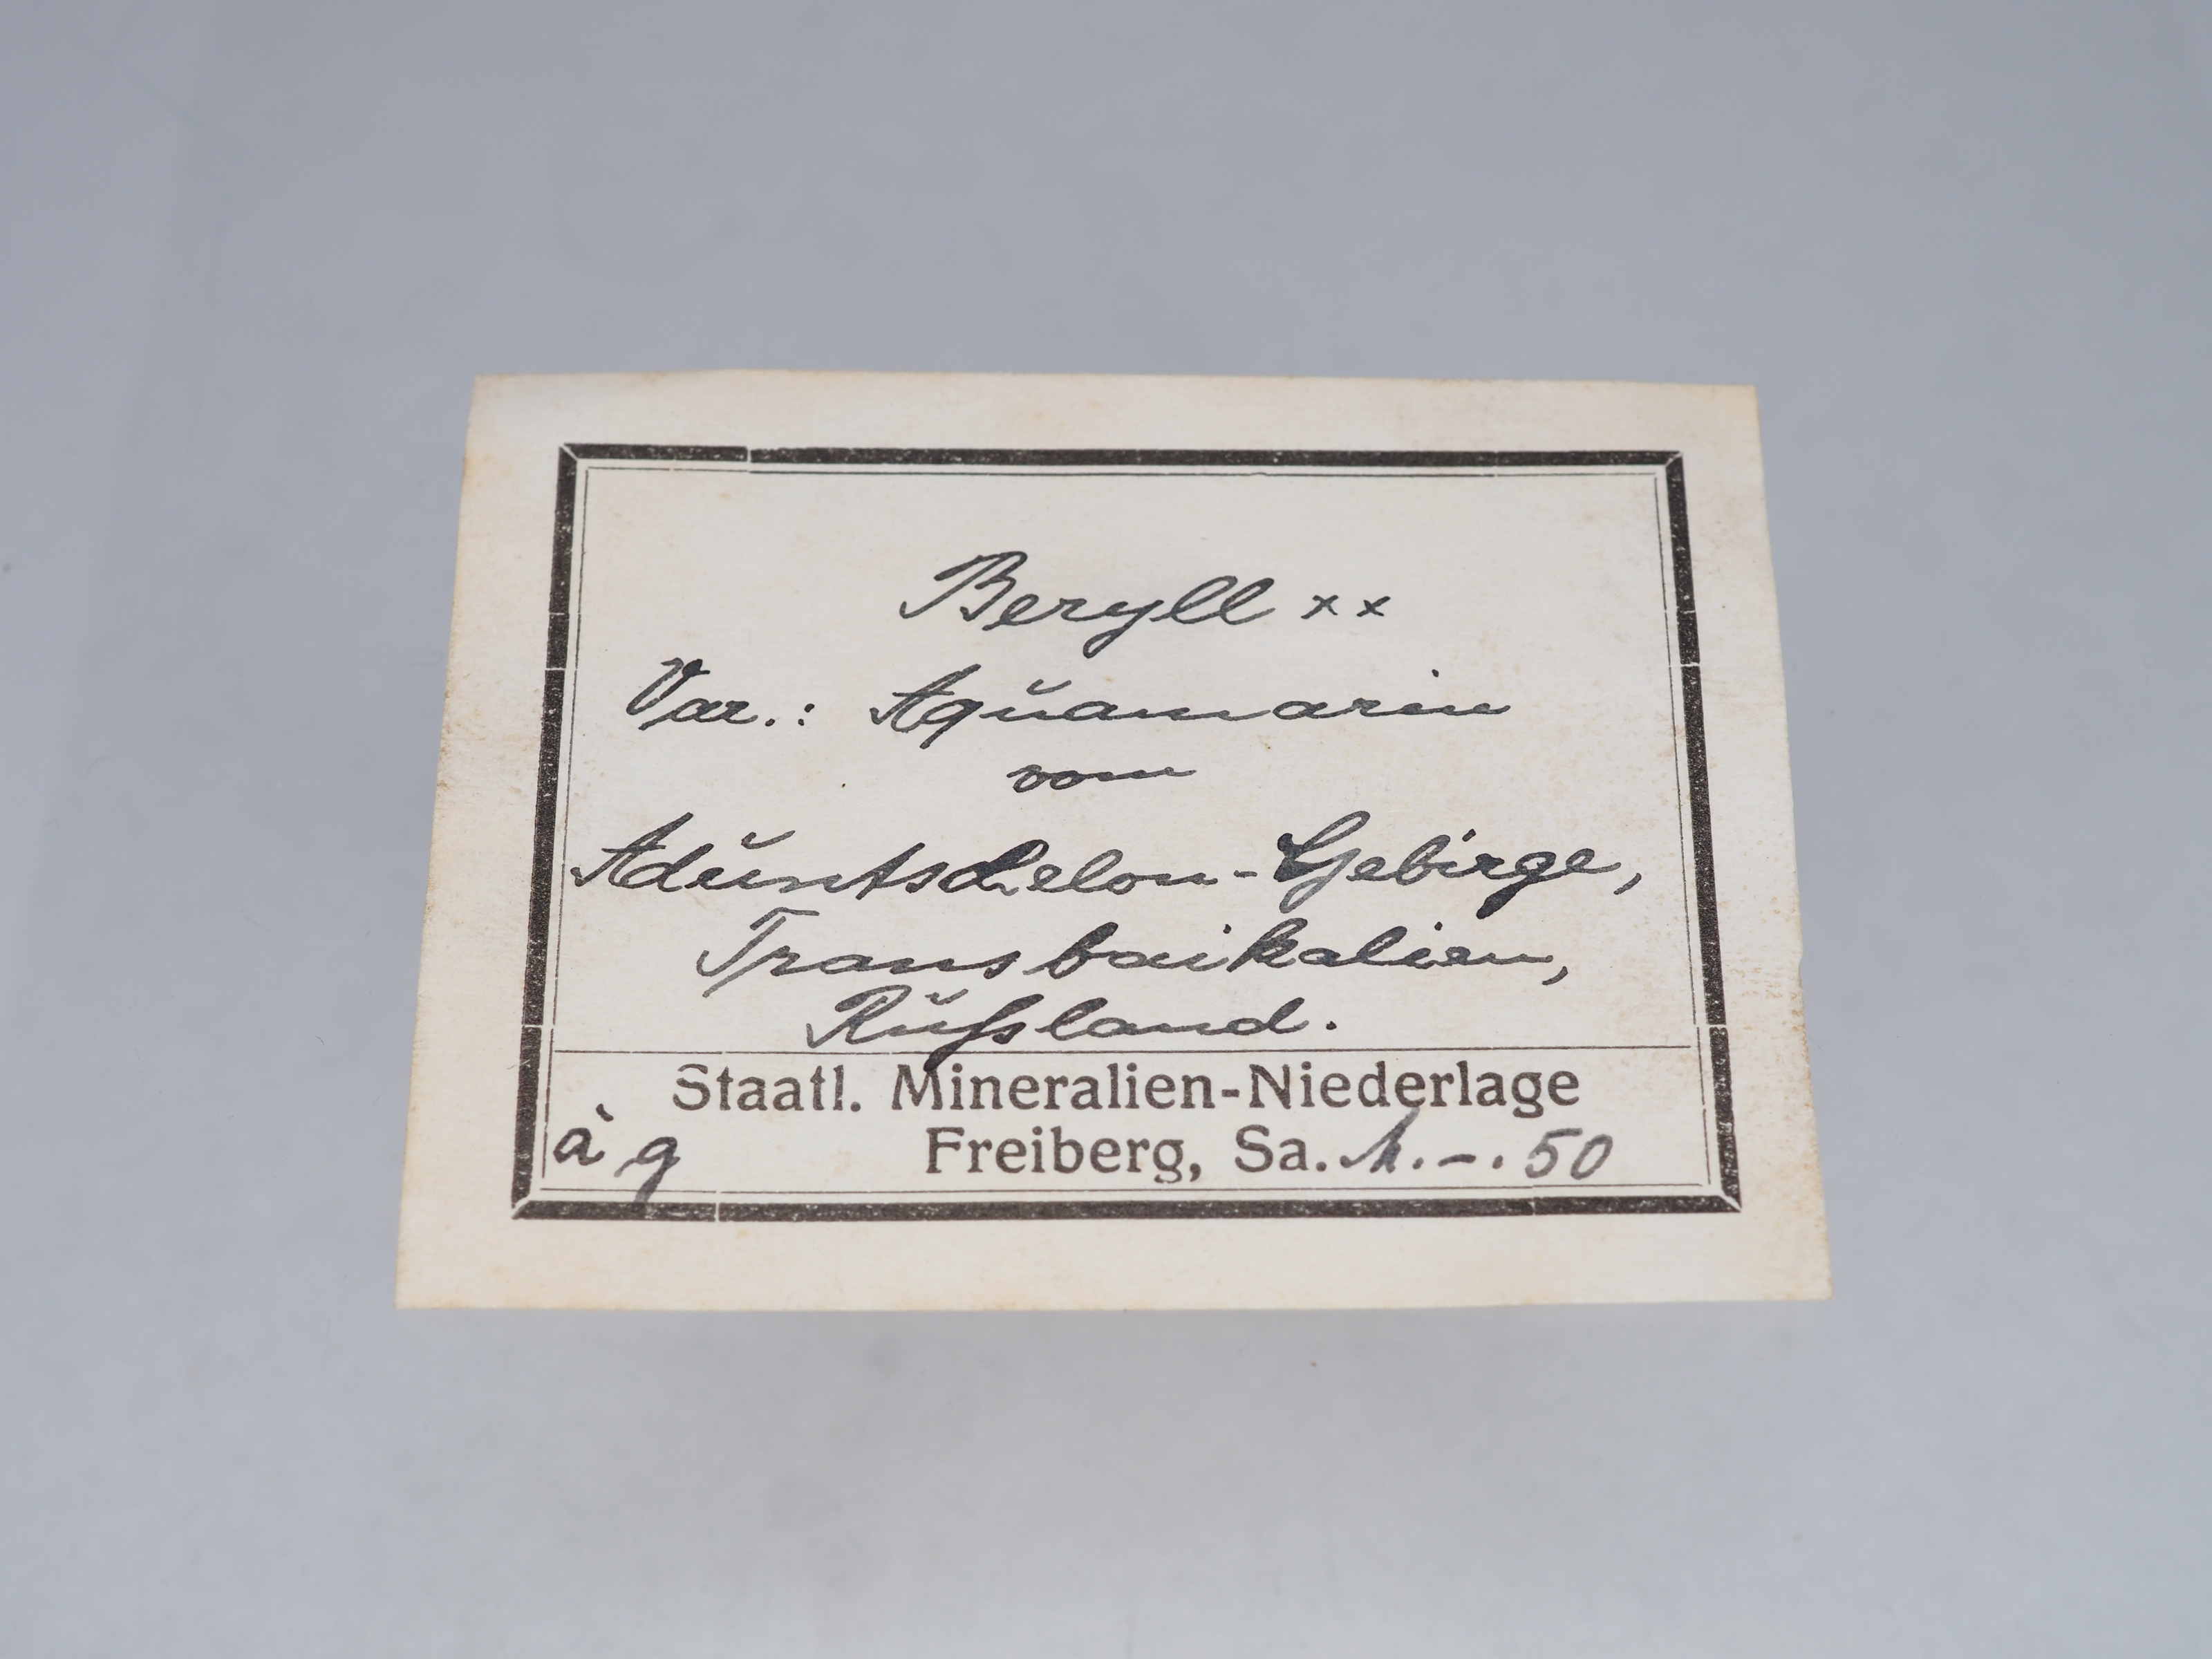 Beryll xx
Var.: Aquamarin
vom
Aduntschelon-Gebirge,
Transbaikalien,
Rußland.
Staatl. Mineralien-Niederlage
à g Freiberg, Sa. M. -.50